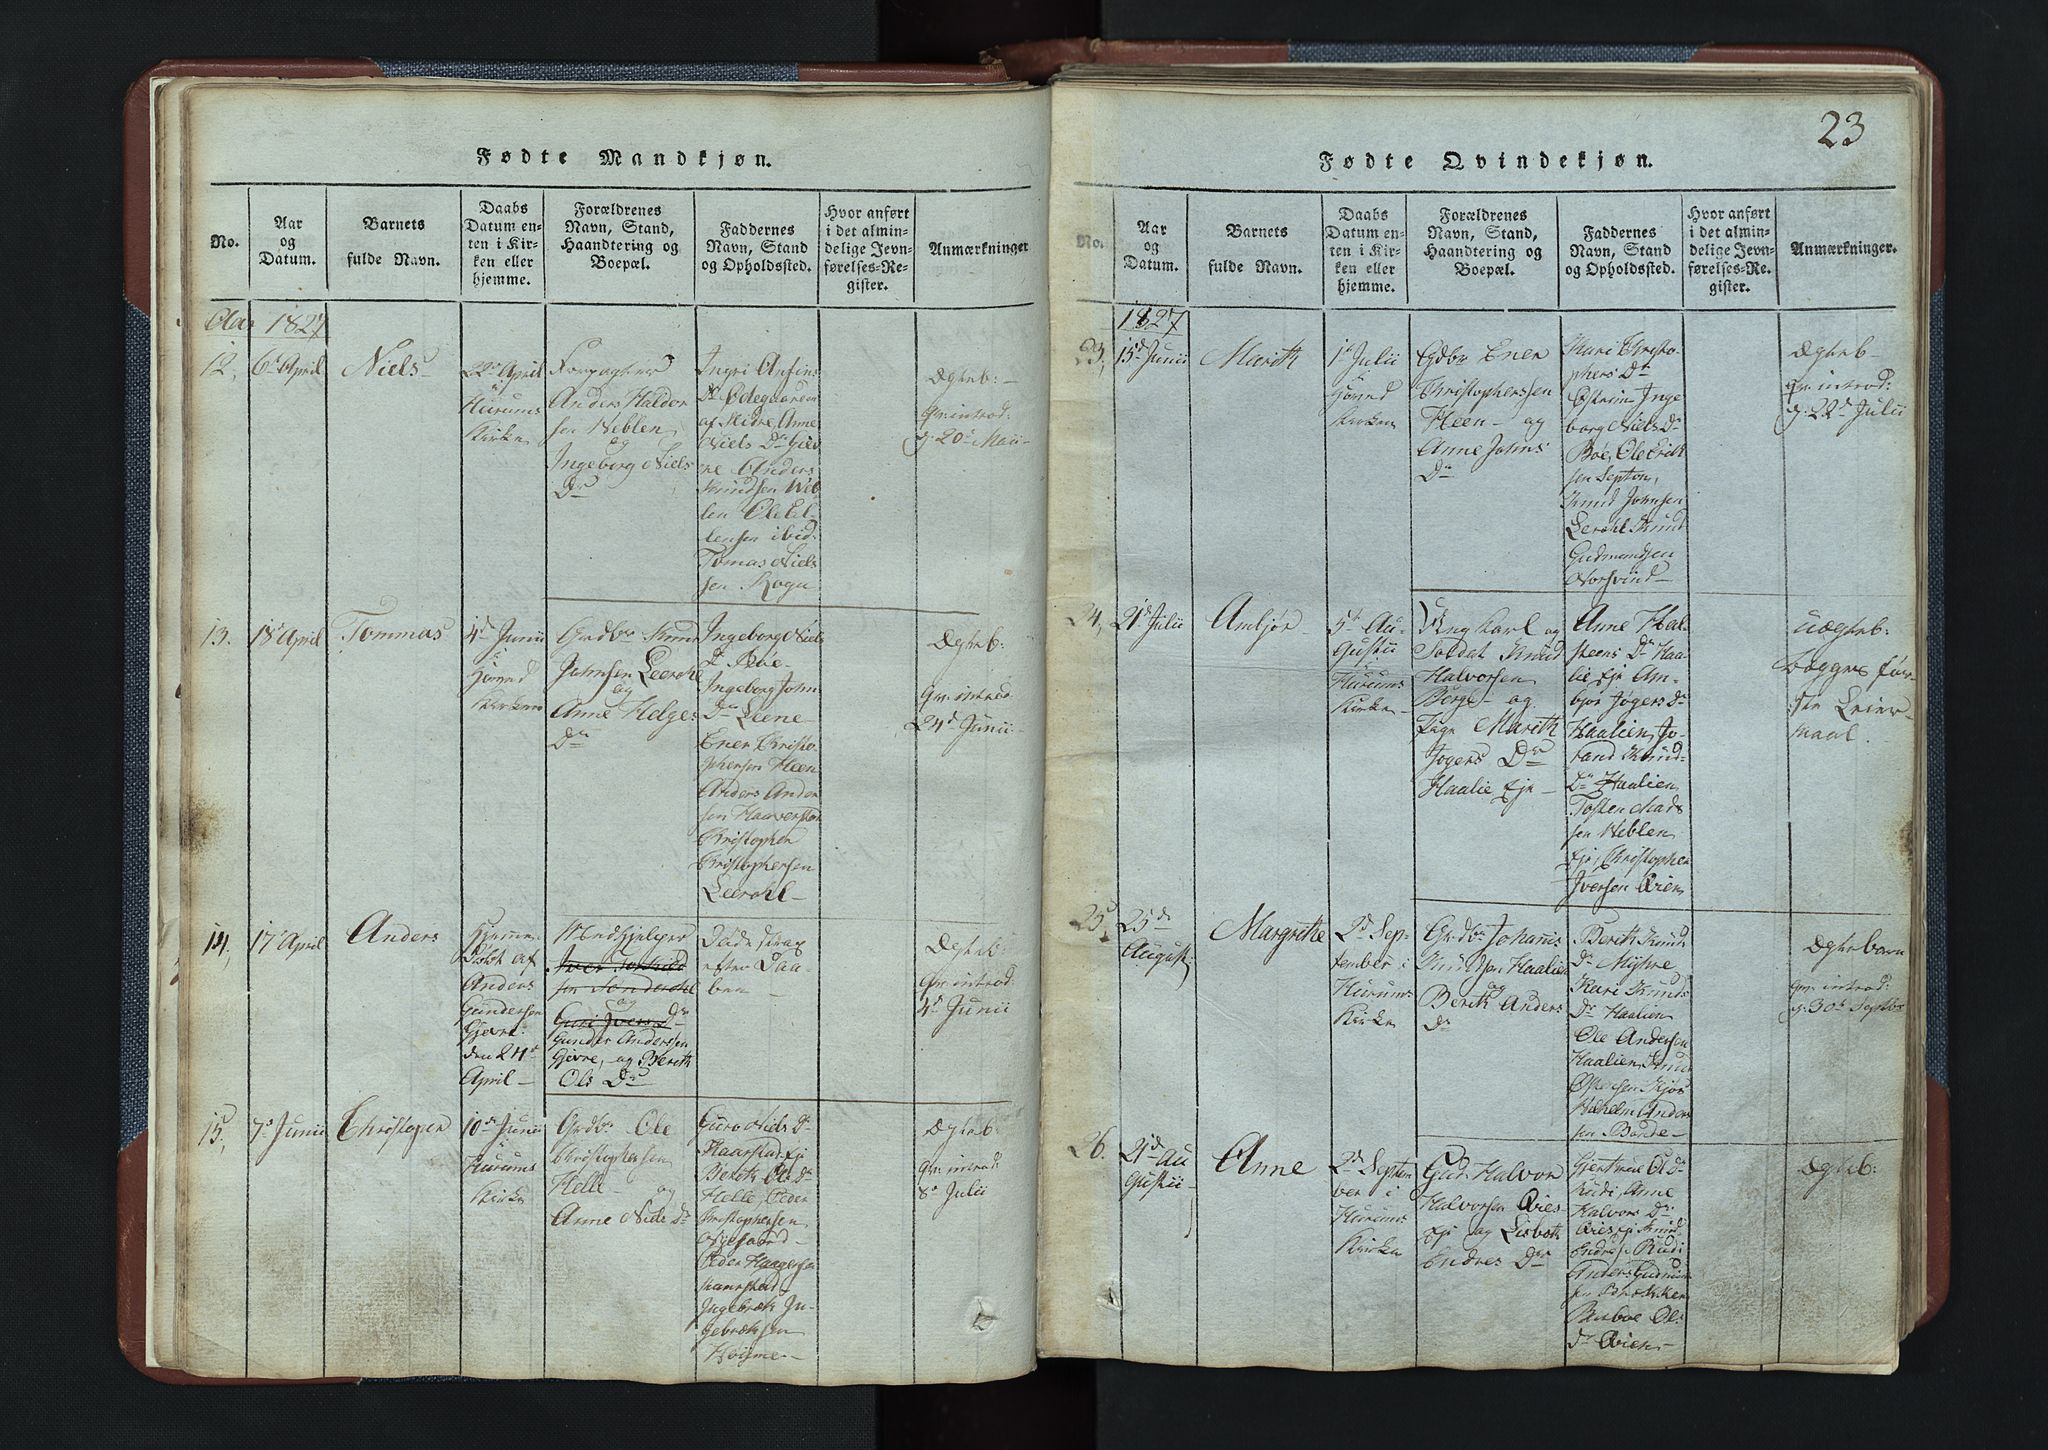 23
Fødte Mandkjøn.
No.
Aar
og
Datum.
Barnets
fulde Navn.
Daabs
Datum en-
ten i Kir-
ken eller
hjemme.
Forældrenes
Navn, Stand,
Haandtering og
Boepæl.
Faddernes
Navn, Stand
og Opholdssted.
Hvor anført
i det almin-
delige Jevn-
førelses-Re-
gister.
Anmærkninger
Aar 1827
12,
6te April
Niels
22de April
i
Hurums
Kirke
Forpagter
Anders Haldor
sen Neblen
og
Ingeborg Niels
Dr
Ingri Anfins
Dr Ødegaarden
af Hidre, Anne
Niels Dr Giev
re Anders
Knudsen Neb
len Ole El-
lensen ibid.
Tomas Niels
sen Rogn
Ægteb:
Qv: introd:
d: 20de Maii
13.
18de April
Tommas
4de Junii
i
Høynd
Kirken
Grdbr Knud
Johnsen Leerohl
og
Anne Helges
Dr
Ingeborg Niels
Dr Bøe
Ingeborg John
Dr Leene
Ener Christo-
phersen Heen
Anders Ander
sen Haaverstad
Christopher
Christophersen
Leerohl
Ægteb:
Qv: introd
24de Junii
14,
17de April
Anders
hjemme-
døbt af
Anders
Gundersen
Gjevre
den 24de
April
Medhjelper
Iver
og
Guri Ivers Dr
Gunder Anderssen
Gjevre, og Berith
Ols Dr
Døde strax
efter Daa-
ben
Ægteb:
Qv: introd
4de Junii
15,
7de Junii
Christoper
10de Junii
i
Hurums
Kirke
Grdbr Ole
Christophersen
Helle og
Anne Niels Dr
Guro Niels Dr
Haarstad Eje
Berith Ols Dr
Helle, Peder
Christophersen
Peder Haagensen
Haarstad
Ingebrekt In-
gebrektsen
Ægteb:
Qv: introd:
8de Julii
Fødte Qvindekjøn.
No.
Aar
og
Datum.
Barnets
fulde Navn.
Daabs
Datum en-
ten i Kir-
ken eller
hjemme.
Forældrenes
Navn, Stand,
Haandtering og
Boepæl.
Faddernes
Navn, Stand
og Opholdssted.
Hvor anført
i det almin-
delige Jevn-
førelses-Re-
gister.
Anmærkninger.
1827
23,
15de Junii
Marith
1de Julii
Høynd
Kirken
Gdbr Ener
Christopherssen
Heen og
Anne Johns
Dr
Kari Christo-
phers Dr
Østrem Inge
borg Niels Dr
Bøe, Ole Erik
sen Septon,
Knud Johnsen
Leerohl Knud
Gudmundsen
Norsvind
Ægteb
Qv: introd:
d: 22de Julii
24,
21de Julii
Ambjør
5te Au-
gustii
Hurums
Kirke
Ungkarl og
Soldat Knud
Halvorsen
Berge og
Pige Marith
Jøgers Dr
Haalie Eje
Anne Hal-
steens Dr Haa-
lie Eje Am-
bjør Jøgers Dr
Haalien, Jo-
rand Knud-
Dr Haalien,
Tosten Mads
sen Neblen
Eje, Christopher
Iversen Qvien
Uægteb:
begges før-
ste Leier-
maal.
25,
25de
August
Margrethe
2de Sep-
tember i
Hurums
Kirke
Grdbr Johannis
Knudsen Haalien
og
Berith Anders
Dr
Berith Knuds
Dr
Kari Knuds
Dr Haalien
Ole Andersen
Haalien, Knud
Wilhelm Anders
sen Bunde
Ægtebarn
Qv: introd:
d: 30te Septbr
26.
21de Au
gustii
Anne
2de Septem
ber i
Hurums
Kirken
Gud. Halvor
Halvorsen Qvies
Eje og Lisbeth
Endres Dr
Gjertrue Ol Dr
Rudi, Anne
Halvors Dr
Qvies Eje Knud
Endres. Rudi
Anders Gudmun
sen
Barboe Ols
Dr Qvien
Ægteb: